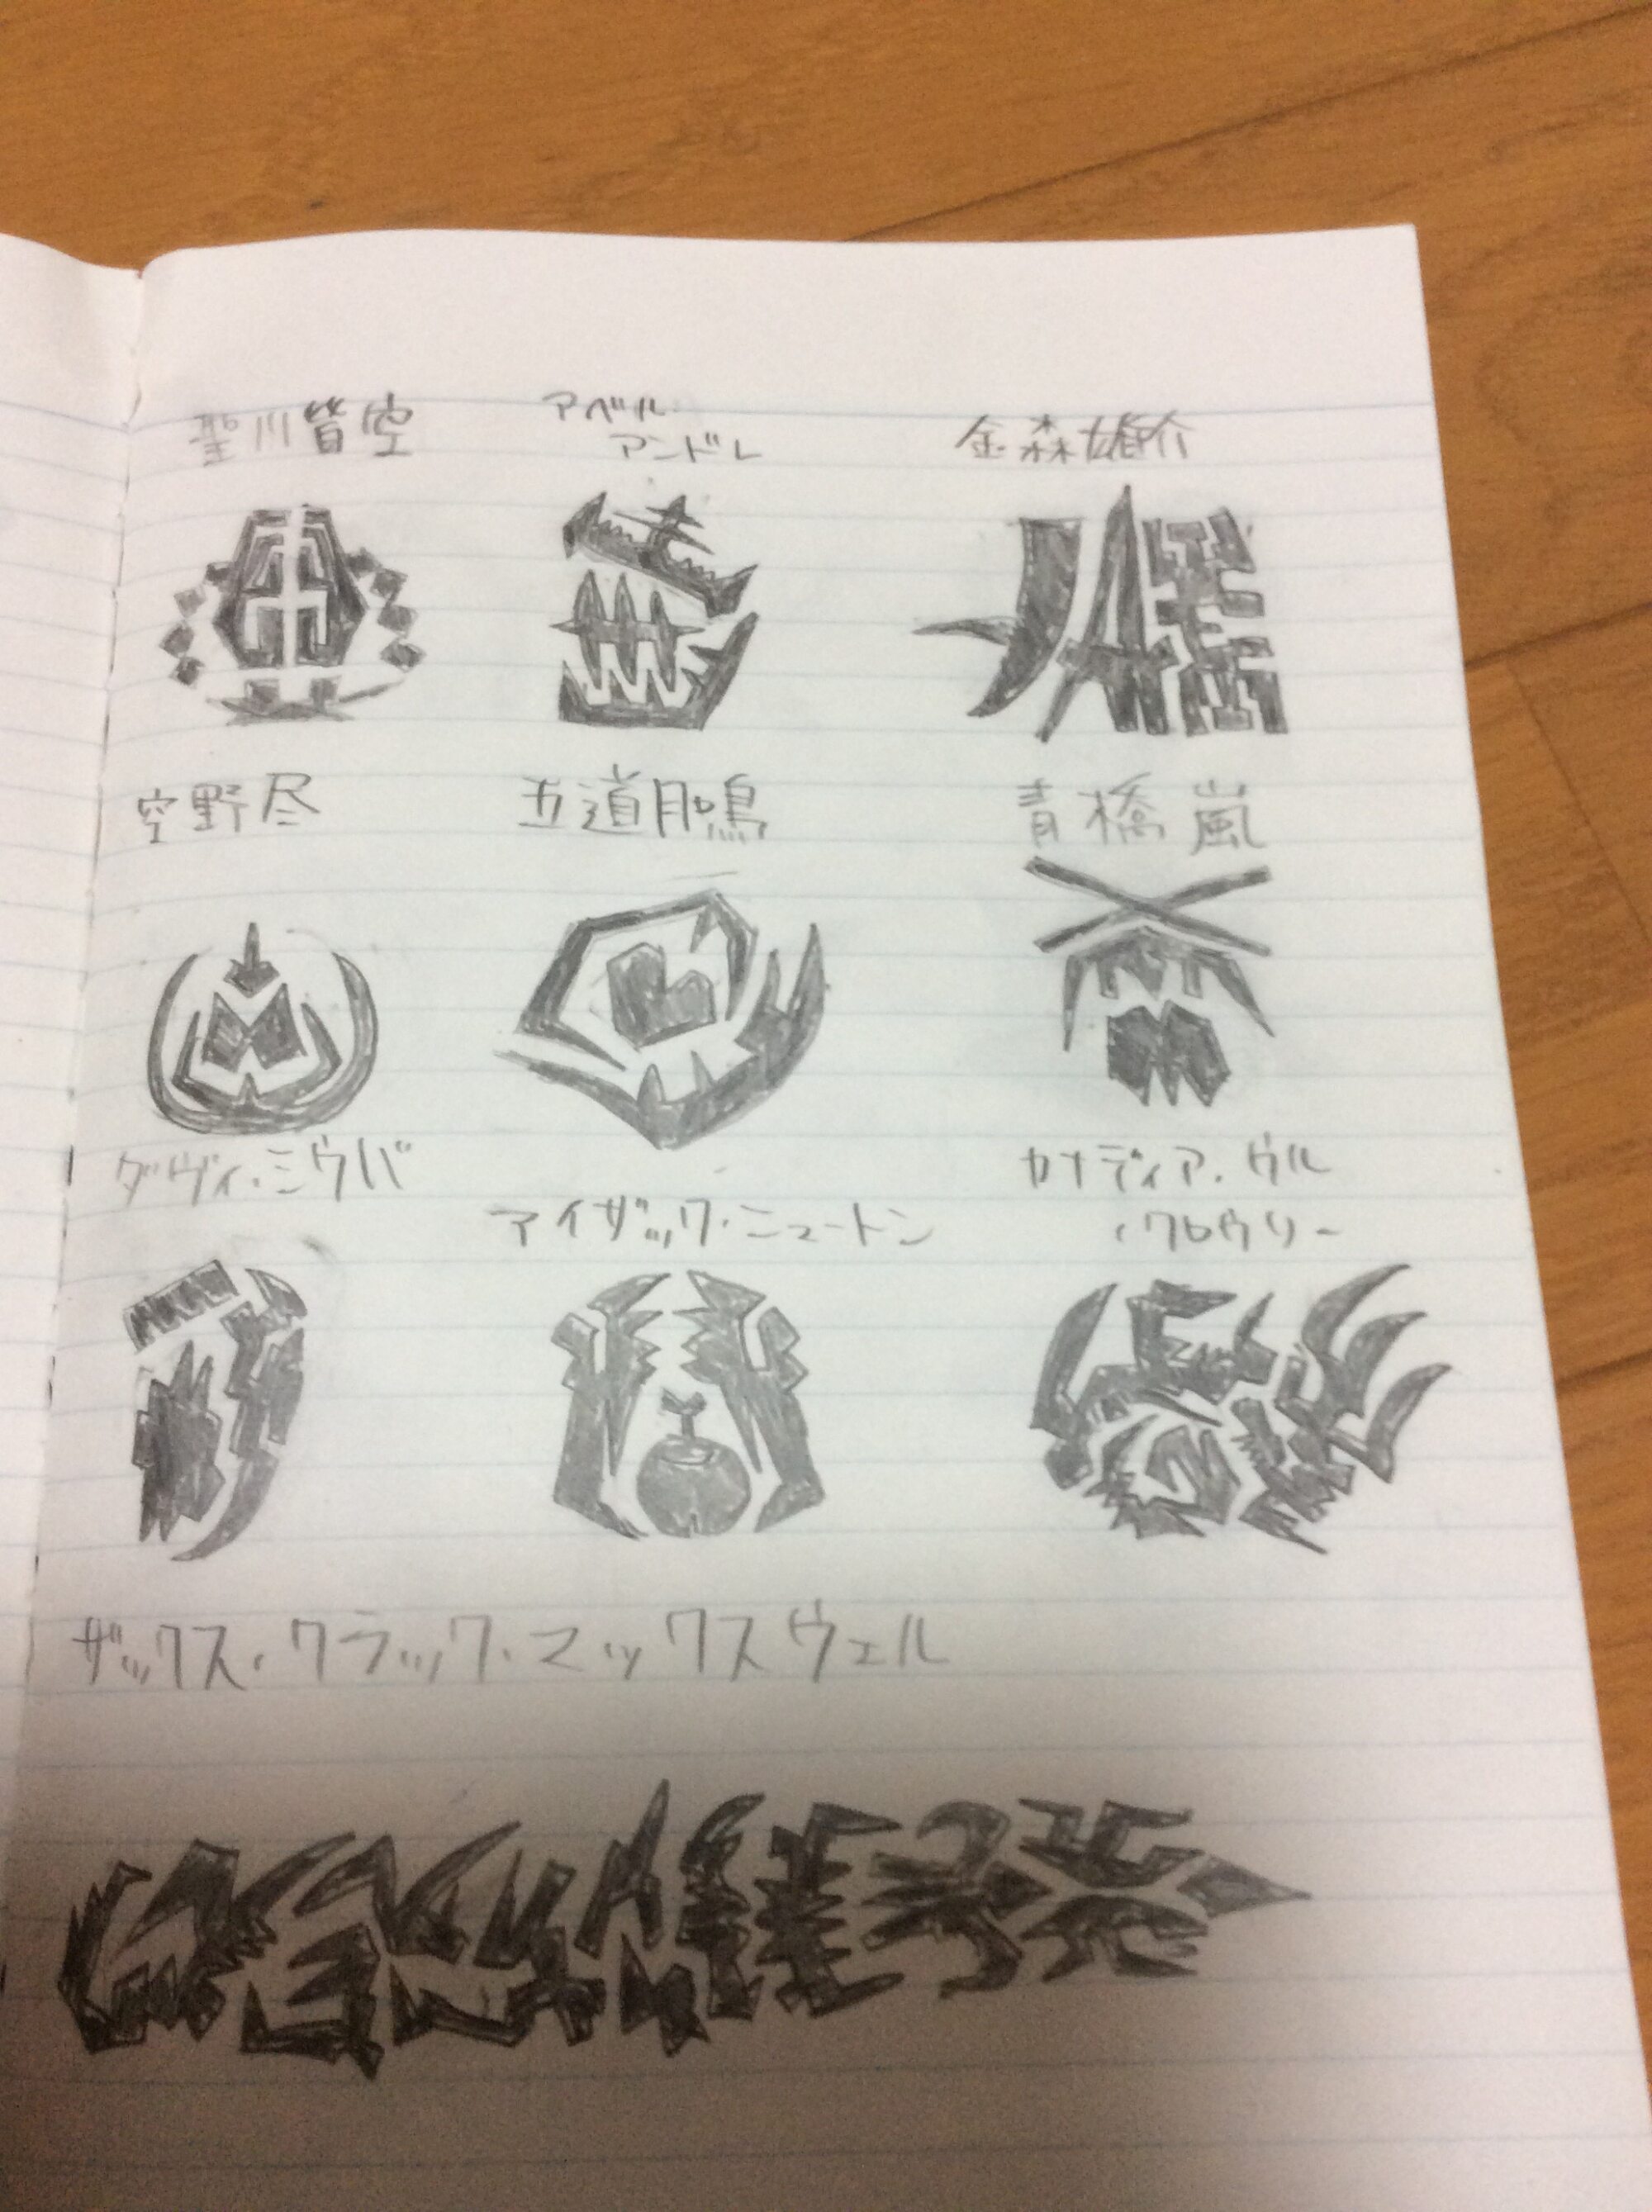 聖川皆空
アベル・
アンドレ
金森雄介
空野尽
五道月鳴
青橋嵐
ダヴィ・ミウバ
アイザック・ニュートン
カナディア・ウル
・クロウリー
ザックス・クラック・マックスウェル